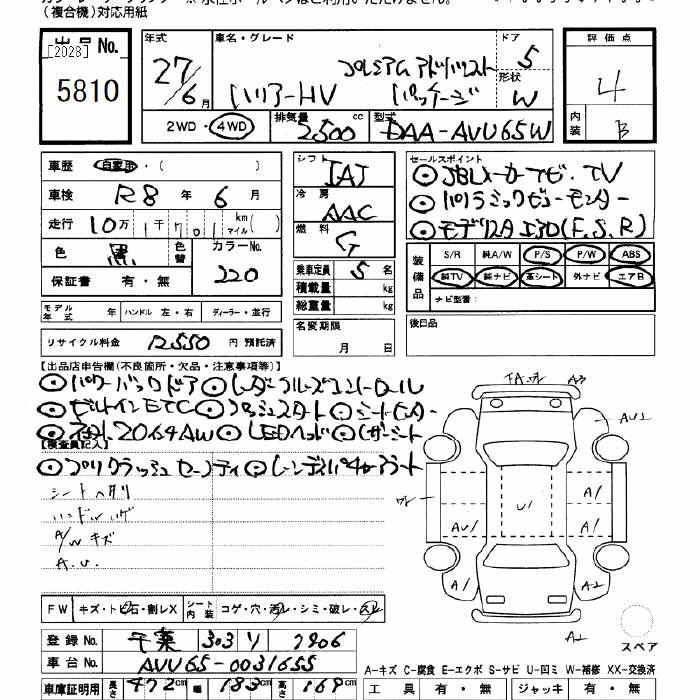 (複合機)対応用紙
出品No.
[2028]
5810
年式
27/6月
車名・グレード
ハリアーHV
プレミアム アドバンスト
パッケージ
ドア 5
形状 W
2WD・4WD
排気量 2500 cc
型式 DAA-AVU65W
評価点
4
内装 B
車歴 自家用・( )
車検 R8 年 6 月
走行 10万1千701 km マイル( )
色 黒 色替
カラーNo. 220
保証書 有・無
モデル年式 年 ハンドル 左・右 ディーラー・並行
リサイクル料金 12550 円 預託済
シフト IAT
冷房 AAC
燃料 G
乗車定員 5 名
積載量 kg
総重量 kg
名変期限
月 日
セールスポイント
◎JBLメーカーナビ・TV
◎パノラミックビューモニター
◎モデリスタエアロ(F,S,R)
装備品
S/R 純A/W P/S P/W ABS
純TV 純ナビ 革シート 外ナビ エアB
ナビ型番:
後日品
【出品店申告欄(不良箇所・欠品・注意事項等)】
◎パワーバックドア◎レーダークルーズコントロール
◎ビルトインETC◎プッシュスタート◎シートヒーター
◎ ◎LEDヘッド◎レザーシート
【検査員記入】
◎プリクラッシュセーフティ◎レーンディパーチャーアラート
シートヘタリ
ハンドルハゲ
A/Wキズ
A.U.
A3
AU1
A1
U1
A1
AU1
A1
A2
A2
スペア
FW キズ・トビ石・割レX
シート内装 コゲ・穴・汚レ・シミ・破レ・スレ
登録No. 千葉 303 リ 7906
車台No. AVU65-0031655
車庫証明用 長さ 472cm 幅 183cm 高さ 169cm
A-キズ C-腐食 E-エクボ S-サビ U-凹ミ W-補修 XX-交換済
工具 有・無 ジャッキ 有・無